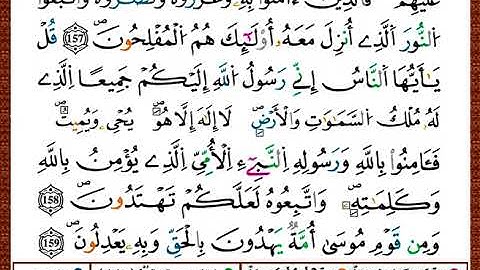 عَلَيْهِمْ فَالَّذِينَ ءَامَنُوا بِهِ وَعَزَّرُوهُ وَنَصَرُوهُ وَاتَّبَعُوا
اَلنُّورَ اَلَّذِے أُنزِلَ مَعَهُۥ أُوْلَٰٓئِكَ هُمُ اُلْمُفْلِحُونَ ۖ 157 قُلْ
يَٰٓأَيُّهَا اَلنَّاسُ إِنِّے رَسُولُ اُللَّهِ إِلَيْكُمْ جَمِيعًا اِلَّذِے
لَهُۥ مُلْكُ اُلسَّمَٰوَٰتِ وَالْأَرْضِ ۖ لَآ إِلَٰهَ إِلَّا هُوَ ۖ يُحْيِۦ وَيُمِيتُ ۖ
فَـَٔامِنُوا بِاللَّهِ وَرَسُولِهِ اِلنَّبِےٓءِ اِلْأُمِّيِّ اِلَّذِے يُؤْمِنُ بِاللَّهِ
وَكَلِمَٰتِهِۦ ۖ وَاتَّبِعُوهُ لَعَلَّكُمْ تَهْتَدُونَ ۖ 158
وَمِن قَوْمِ مُوسَىٰٓ أُمَّةٌ يَهْدُونَ بِالْحَقِّ وَبِهِۦ يَعْدِلُونَ ۖ 159